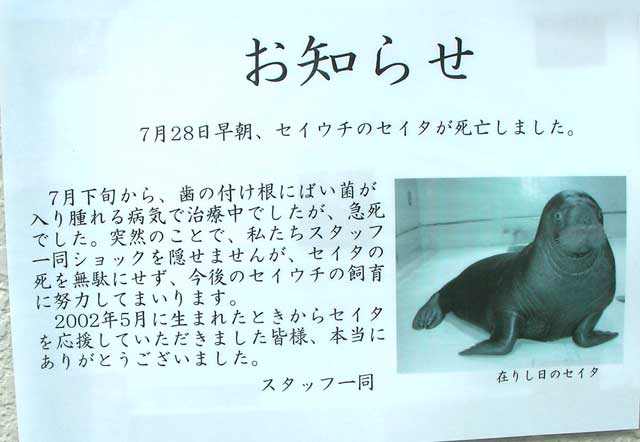 お知らせ
7月28日早朝、セイウチのセイタが死亡しました。
7月下旬から、歯の付け根にばい菌が
入り腫れる病気で治療中でしたが、急死
でした。突然のことで、私たちスタッフ
一同ショックを隠せませんが、セイタの
死を無駄にせず、今後のセイウチの飼育
に努力してまいります。
2002年5月に生まれたときからセイタ
を応援していただきました皆様、本当に
ありがとうございました。
スタッフ一同
在りし日のセイタ